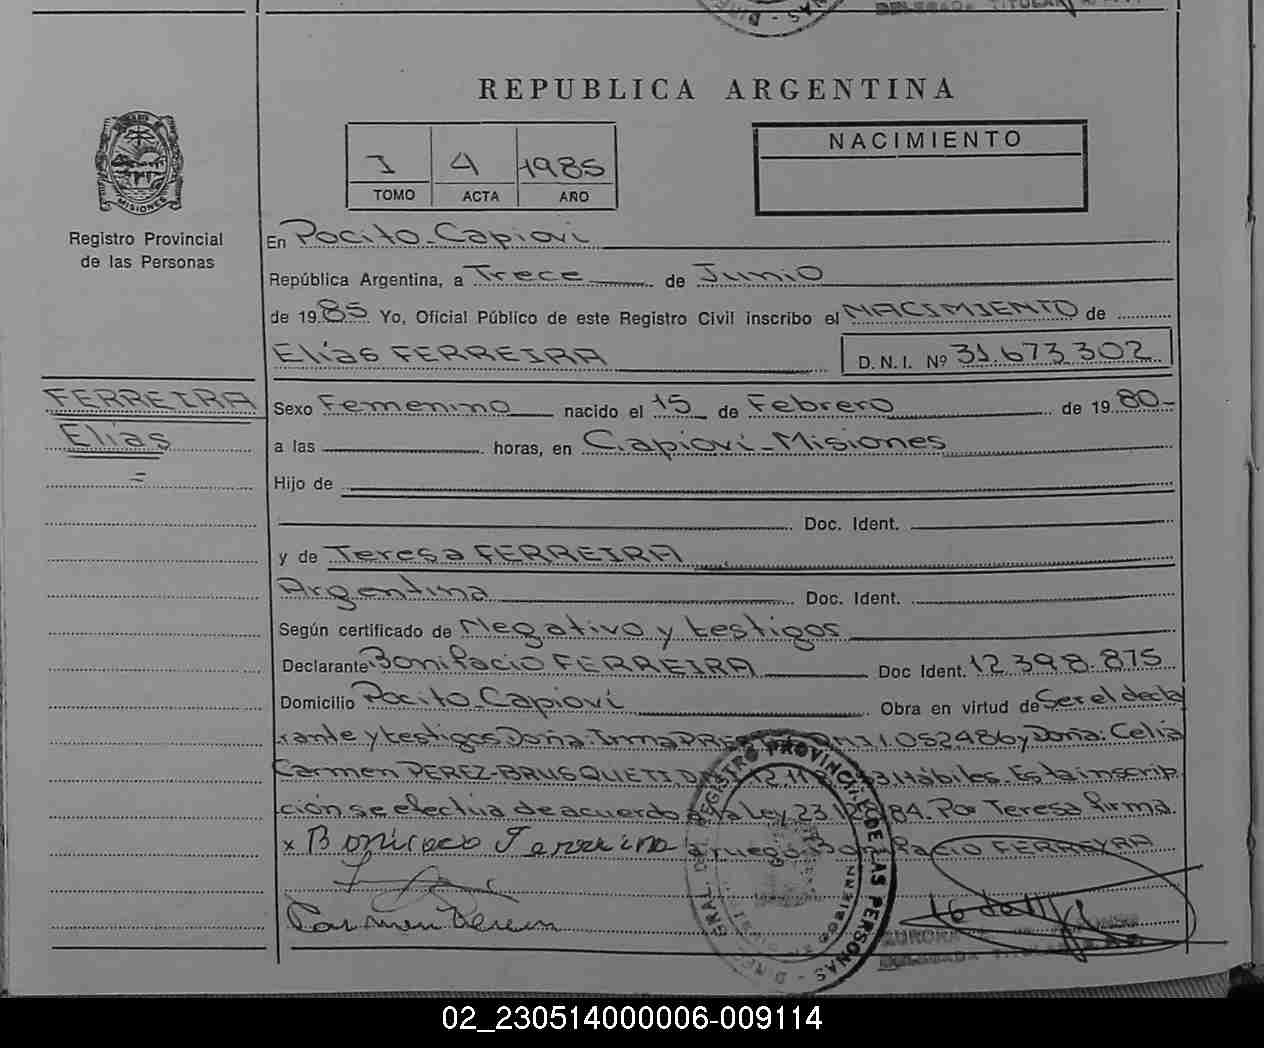 REPUBLICA ARGENTINA
MISIONES
Registro Provincial
de las Personas
I 4 1985
TOMO ACTA AÑO
NACIMIENTO
En Pocito-Capioví
República Argentina, a Trece de Junio
de 1985 Yo, Oficial Público de este Registro Civil inscribo el NACIMIENTO de
Elías FERREIRA D.N.I. Nº 31.673.302
FERREIRA
Elías
Sexo Femenino nacido el 15 de Febrero de 1980-
a las horas, en Capioví-Misiones
Hijo de
Doc. Ident.
y de Teresa FERREIRA
Argentina Doc. Ident.
Según certificado de Negativo y testigos
Declarante Bonifacio FERREIRA Doc Ident. 12.398.875
Domicilio Pocito-Capioví Obra en virtud de Ser el decla
rante y testigos Doña: Irma 1.052.486 y Doña: Celia
Carmen PEREZ-BRUSQUETI D 12.11 Hábiles. Esta inscrip
ción se efectúa de acuerdo a la Ley 23.1 84. Por Teresa firma
x Bonifacio Ferreira a ruego Bonifacio FERREYRA
Carmen Perez
REGISTRO PROVINCIAL DE LAS PERSONAS
DELEGADA TITULAR
02_230514000006-009114